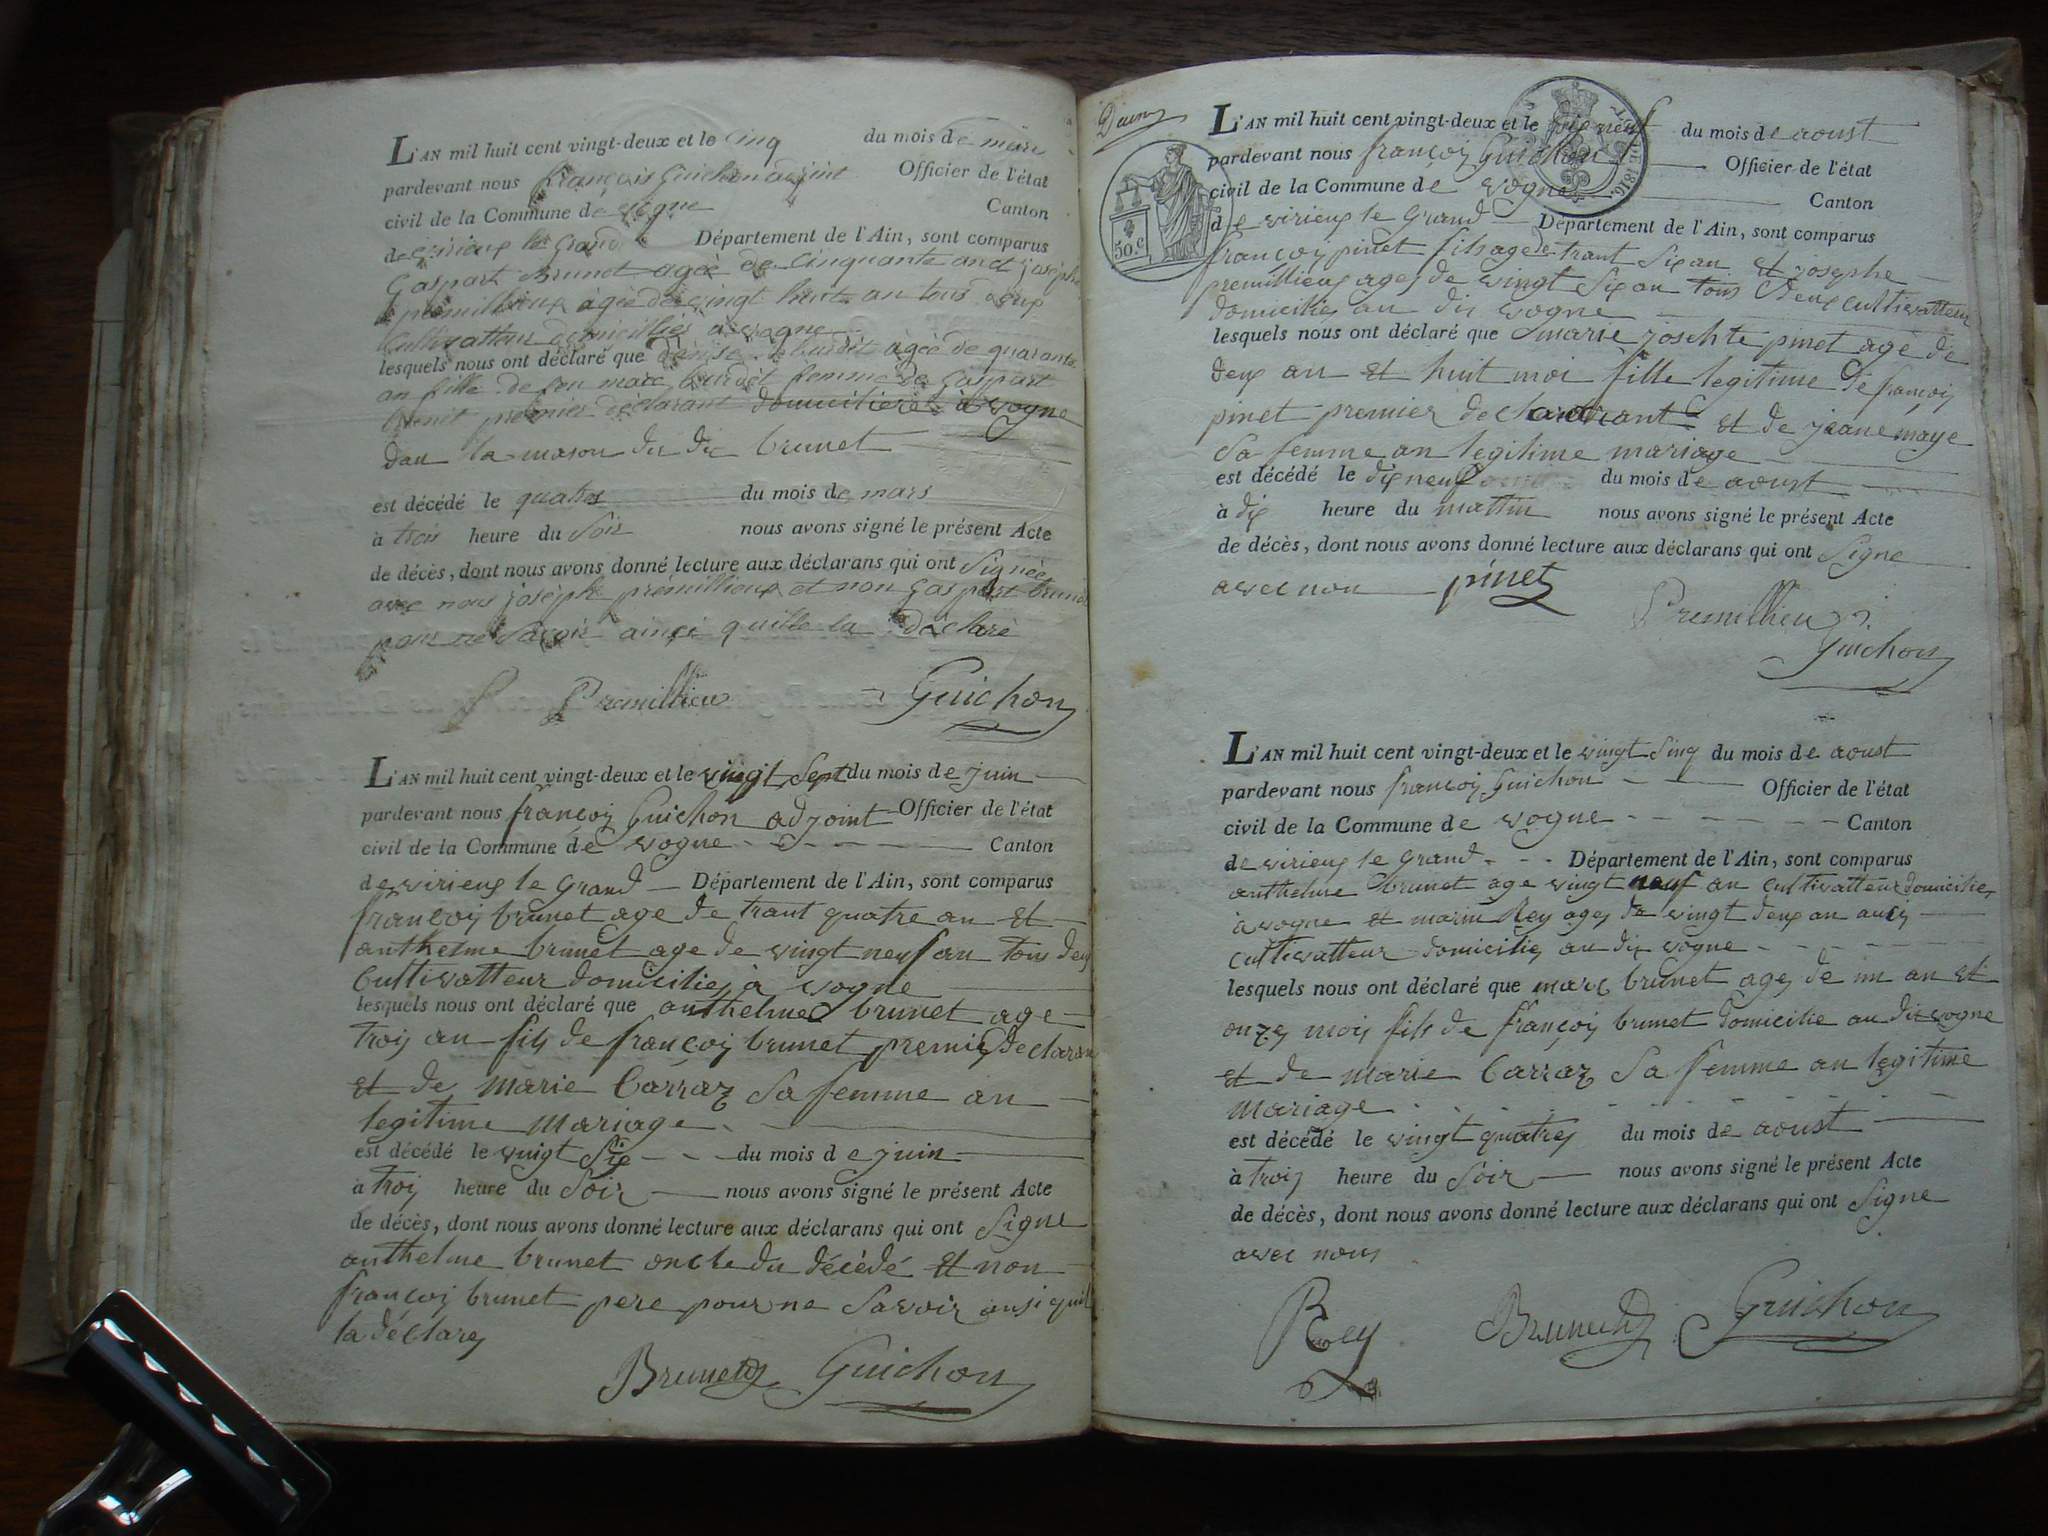 L'AN mil huit cent vingt-deux et le cinq du mois de mars
pardevant nous françois Guichon adjoint Officier de l'état
civil de la Commune de vogne Canton
de virieux le Grand Département de l'Ain, sont comparus
Gaspart Brunet agée de Cinquante an et joséphe
premillieux àgée de vingt huit an tous deux
Cultivatteur domiciliés a vogne
lesquels nous ont déclaré que burdit àgée de quarante
an fille de feu marc burdit femme de Gaspart
brunet premier déclarant domicilieré à vogne
dan la mason du di brunet
est décédé le quatres du mois de mars
à trois heure du Soir nous avons signé le présent Acte
de décès, dont nous avons donné lecture aux déclarans qui ont Signée
avec nous joséph prémillieux et non Gaspart brunet
pour ne savoir ainçi quille la déclaré
Premillieu Guichon
L'AN mil huit cent vingt-deux et le vingt Sept du mois de juin
pardevant nous françoy Guichon adjoint Officier de l'état
civil de la Commune de vogne Canton
de virieux le Grand Département de l'Ain, sont comparus
françoy brunet age de trant quatre an et
anthelme brunet age de vingt neuf an tous deux
Cultivatteur domiciliey à vogne
lesquels nous ont déclaré que anthelme brunet age
troy an fils de françoy brunet premier declaran
et de marie Carraz Sa femme an
legitime mariage
est décédé le vingt Six du mois de juin
à troy heure du Soir nous avons signé le présent Acte
de décès, dont nous avons donné lecture aux déclarans qui ont Signe
anthelme brunet oncle du décédé et non
françoy brunet pere pour ne Savoir ansi quil
la déclarey
Brunet Guichon
50.c
1816.
L'AN mil huit cent vingt-deux et le dix neuf du mois de aoust
pardevant nous françoy Guichon Officier de l'état
civil de la Commune de vogne Canton
de virieux le Grand Département de l'Ain, sont comparus
françoy pinet fils age de trant Six an et josephe
premillieux agey de vingt Six an tous deux cultivatteur
domicilies au dit vogne
lesquels nous ont déclaré que marie joschte pinet age de
deux an et huit moi fille legitime de françoy
pinet premier declarant et de jeane maye
Sa femme an legitime mariage
est décédé le dix neuf du mois de aoust
à dix heure du mattin nous avons signé le présent Acte
de décès, dont nous avons donné lecture aux déclarans qui ont Signe
avec nou pinet
Premillieu
Guichon
L'AN mil huit cent vingt-deux et le vingt Sinq du mois de aoust
pardevant nous françoy Guichon Officier de l'état
civil de la Commune de vogne Canton
de virieux le Grand Département de l'Ain, sont comparus
anthelme brunet age vingt neuf an cultivatteur domicilies
à vogne et marin Rey agey de vingt deux an auçi
cultivatteur domiciliey au dit vogne
lesquels nous ont déclaré que marc brunet agey de un an et
onzey mois fils de françoy brunet domicilie au dit vogne
et de marie Carraz Sa femme an legitime
mariage
est décédé le vingt quatrey du mois de aoust
à troy heure du Soir nous avons signé le présent Acte
de décès, dont nous avons donné lecture aux déclarans qui ont Signe
avec nous
Rey Brunet Guichon